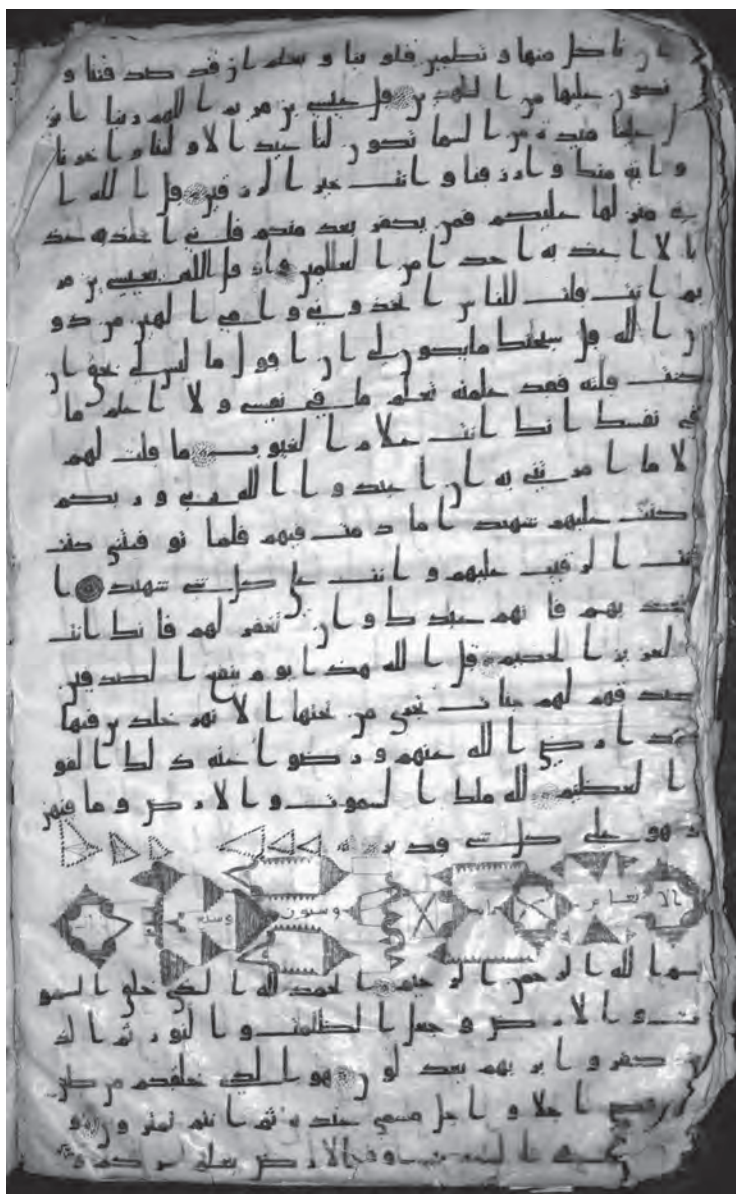 ا ن نا كل منها و تطمئن قلو بنا و نعلم ا ن قد صد قتنا و
نكون عليها من ا لشهد ين قل عيسى بن مر يم ا للهم ربنا ا نز
ل علينا مئدة من ا لسما تكون لنا عيد ا لا و لنا و ا خر نا
و ا ية منك و ا ر ز قنا و ا نت خير ا لر ز قين قل ا لله ا
ني منزلها عليكم فمن يكفر بعد منكم فاني ا عذبه عذ
ا با لا ا عذبه ا حد ا من ا لعلمين و اذ قل الله يعيسى بن مر
يم ا نت قلت للنا س ا تخذ و ني و ا مي ا لهين من دو
ن ا لله قل سبحنك ما يكون لي ا ن ا قول ما ليس لي بحق ا ن
كنت قلته فقد علمته تعلم ما في نفسي و لا ا علم ما
في نفسك ا نك ا نت علا م ا لغيو ب ما قلت لهم
ا لا ما ا مر تني به ا ن ا عبد و ا ا لله ربي و ر بكم
و كنت عليهم شهيد ا ما د مت فيهم فلما تو فيتني كنت
ا نت ا لر قيب عليهم و ا نت على كل شي شهيد ا
ن تعذ بهم فا نهم عبد ك و ا ن تغفر لهم فا نك ا نت
ا لعز يز ا لحكيم قل ا لله هذ ا يو م ينفع ا لصد قين
صد قهم لهم جنا ت تجري من تحتها ا لا نهر خلد ين فيها
ا بد ا ر ضي ا لله عنهم و ر ضو ا عنه ذ لك ا لفو
ز ا لعظيم لله ملك ا لسموت و ا لا ر ض و ما فيهن
و هو على كل شي قد ير
الا نعا م وستون وسبع
بسم ا لله ا لر حمن ا لر حيم ا لحمد لله ا لذي خلق ا لسمو
ت و ا لا ر ض و جعل ا لظلمت و ا لنو ر ثم ا لذ
ين كفر و ا بر بهم يعد لو ن هو ا لذي خلقكم من طين
ثم قضى ا جلا و ا جل مسمى عند ه ثم ا نتم تمتر و ن و
هو ا لله في ا لسموت و في ا لا ر ض يعلم سر كم و